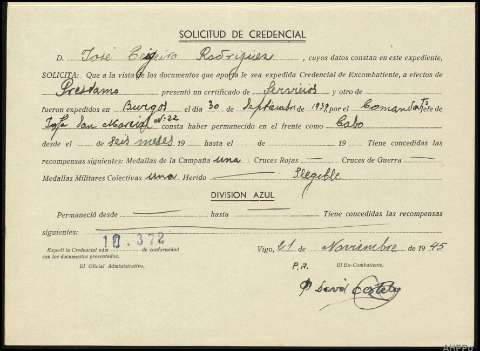 SOLICITUD DE CREDENCIAL
D. José Rodríguez, cuyos datos constan en este expediente,
SOLICITA: Que a la vista de los documentos que aporta le sea expedida Credencial de Excombatiente, a efectos de
Prestamo presentó un certificado de Servicios y otro de
fueron expedidos en Burgos el día 30 de Septiembre de 1939 por el Comandante Jefe de
Infª San Marcial nº 22 consta haber permanecido en el frente como Cabo
desde el de seis meses 19 hasta el de 19 Tiene concedidas las
recompensas siguientes: Medallas de la Campaña una Cruces Rojas — Cruces de Guerra —
Medallas Militares Colectivas una Herido — Ilegible
DIVISION AZUL
Permaneció desde — hasta — Tiene concedidas las recompensas
siguientes:
10.372
Expedí la Credencial núm. de conformidad
con los documentos presentados.
El Oficial Administrativo,
Vigo, 21 de Noviembre de 1945
P.A. El Ex-Combatiente,
David